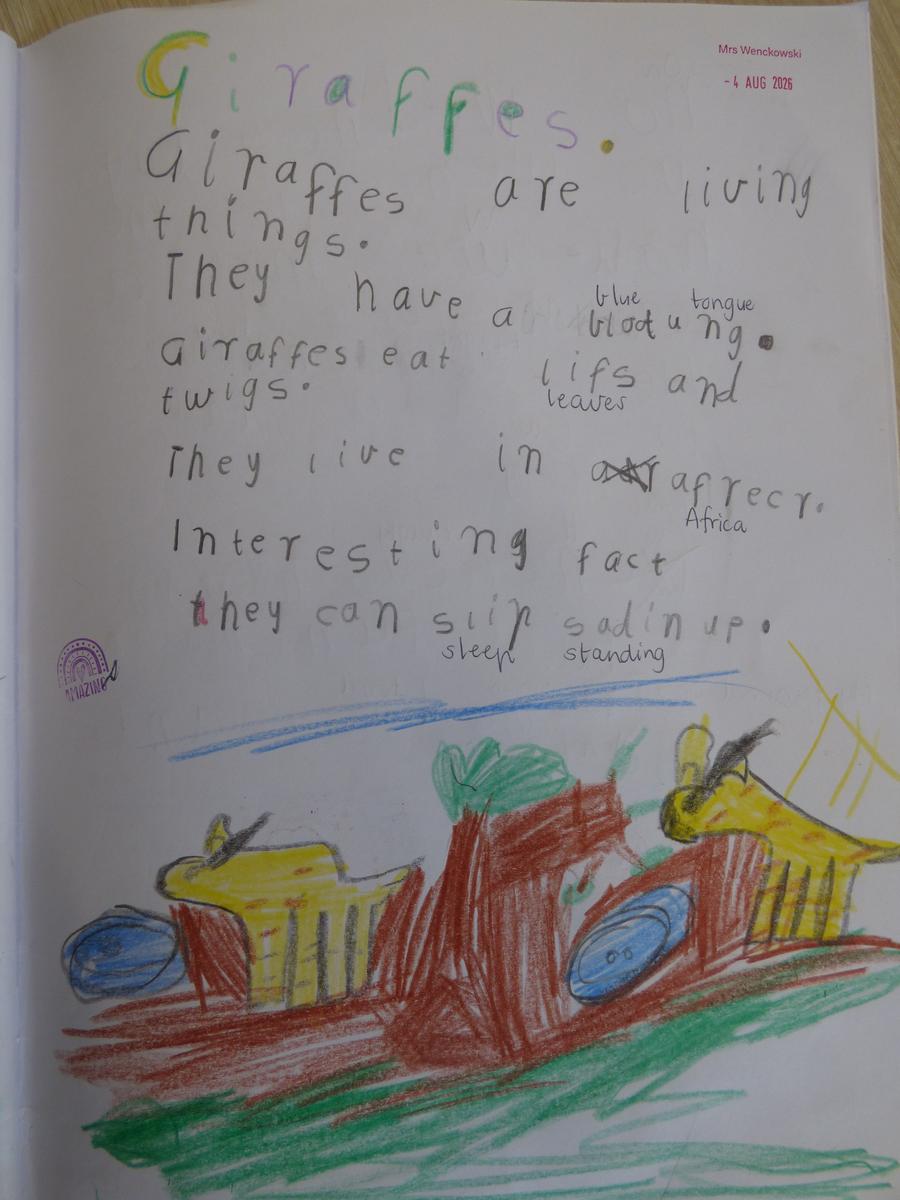 Mrs Wenckowski
- 4 AUG 2026
Giraffes.
Giraffes are living
things.
They have a
blue tongue
blootung.
Giraffes eat lifs and
leaves
twigs.
They live in afrecr.
Africa
Interesting fact
they can slip sadin up.
sleep standing
AMAZING